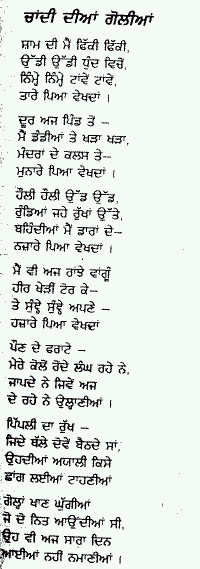 ਚਾਂਦੀ ਦੀਆਂ ਗੋਲੀਆਂ
ਸ਼ਾਮ ਦੀ ਮੈਂ ਫਿੱਕੀ ਫਿੱਕੀ,
ਉੱਡੀ ਉੱਡੀ ਧੁੰਦ ਵਿਚੋਂ,
ਨਿੰਮ੍ਹੇ ਨਿੰਮ੍ਹੇ ਟਾਂਵੇਂ ਟਾਂਵੇਂ,
ਤਾਰੇ ਪਿਆ ਵੇਖਦਾਂ ।
ਦੂਰ ਅਜ ਪਿੰਡ ਤੋ –
ਮੈਂ ਡੰਡੀਆਂ ਤੇ ਖੜਾ ਖੜਾ,
ਮੰਦਰਾਂ ਦੇ ਕਲਸ ਤੇ–
ਮੁਨਾਰੇ ਪਿਆ ਵੇਖਦਾਂ ।
ਹੌਲੀ ਹੌਲੀ ਉੱਡ ਉੱਡ,
ਰੁੰਡਿਆਂ ਜਹੇ ਰੁੱਖਾਂ ਉੱਤੇ,
ਬਹਿੰਦੀਆਂ ਮੈਂ ਡਾਰਾਂ ਦੇ–
ਨਜ਼ਾਰੇ ਪਿਆ ਵੇਖਦਾਂ ।
ਮੈਂ ਵੀ ਅਜ ਰਾਂਝੇ ਵਾਂਗੂੰ
ਹੀਰ ਖੇੜੀਂ ਟੋਰ ਕੇ–
ਤੇ ਸੁੰਞੇ ਸੁੰਞੇ ਅਪਣੇ –
ਹਜ਼ਾਰੇ ਪਿਆ ਵੇਖਦਾਂ
ਪੌਣ ਦੇ ਫਰਾਟੇ –
ਮੇਰੇ ਕੋਲੋਂ ਰੋਂਦੇ ਲੰਘ ਰਹੇ ਨੇ,
ਜਾਪਦੇ ਨੇ ਜਿਵੇਂ ਅਜ
ਦੇ ਰਹੇ ਨੇ ਉਲ੍ਹਾਣੀਆਂ ।
ਪਿੱਪਲੀ ਦਾ ਰੁੱਖ –
ਜਿਦੇ ਥੱਲੇ ਦੋਵੇਂ ਬੈਠਦੇ ਸਾਂ,
ਉਹਦੀਆਂ ਅਯਾਲੀ ਕਿਸੇ
ਛਾਂਗ ਲਈਆਂ ਟਾਹਣੀਆਂ
ਗੋਲ੍ਹਾਂ ਖਾਣ ਘੁੱਗੀਆਂ
ਜੋ ਦੋ ਨਿਤ ਆਉਂਦੀਆਂ ਸੀ,
ਉਹ ਵੀ ਅਜ ਸਾਰਾ ਦਿਨ
ਆਈਆਂ ਨਹੀਂ ਨਮਾਣੀਆਂ ।